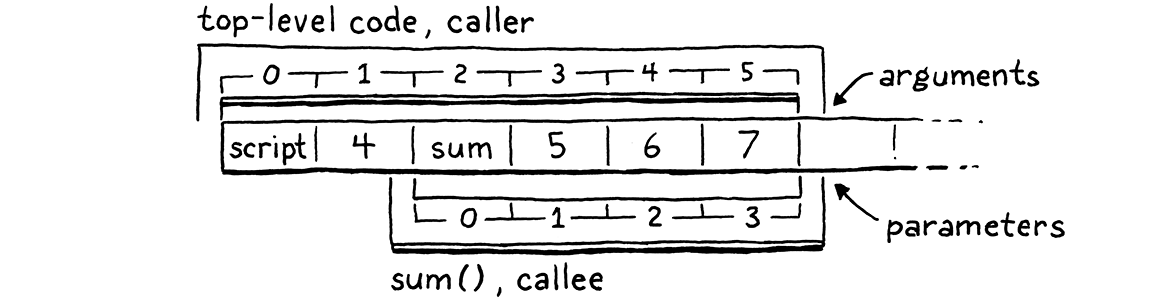 top-level code, caller
0 1 2 3 4 5
arguments
script 4 sum 5 6 7
0 1 2 3
parameters
sum(), callee